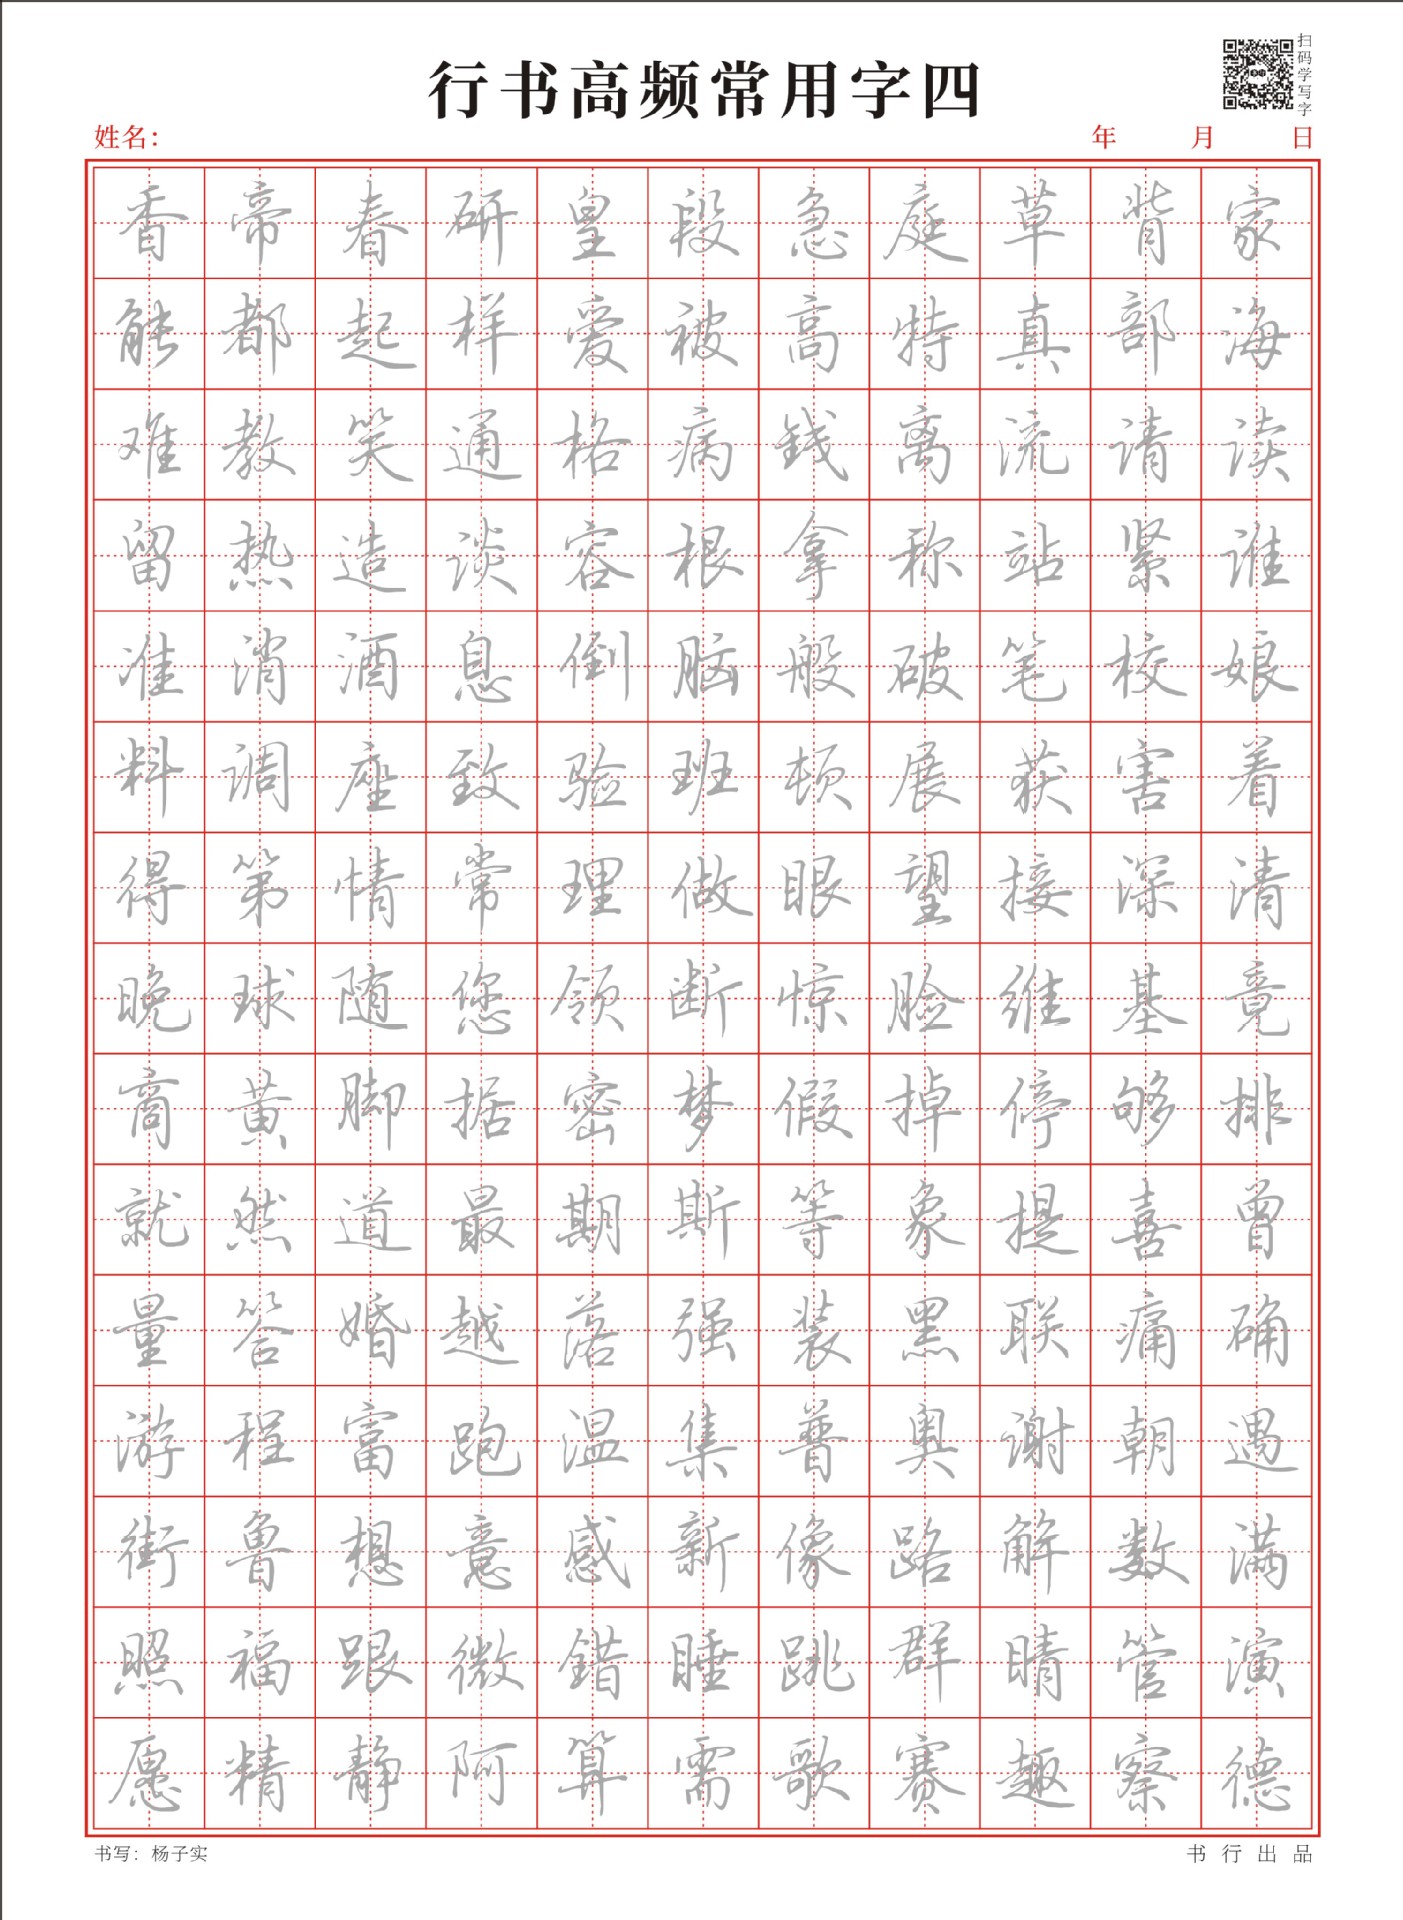 行书高频常用字四
扫码学写字
姓名： 年 月 日
香帝春研皇段急庭草背家
能都起样爱被高特真部海
难教笑通格病钱离流请读
留热造谈容根拿称站紧谁
准消酒息倒脑般破笔校娘
料调座致验班顿展获害着
得第情常理做眼望接深清
晚球随您领断惊脸维基竟
商黄脚据密梦假掉停够排
就然道最期斯等象提喜曾
量答婚越落强装黑联痛确
游程富跑温集普奥谢朝遇
街鲁想意感新像路解数满
照福跟微错睡跳群睛管演
愿精静阿算需歌赛趣察德
书写：杨子实 书行出品